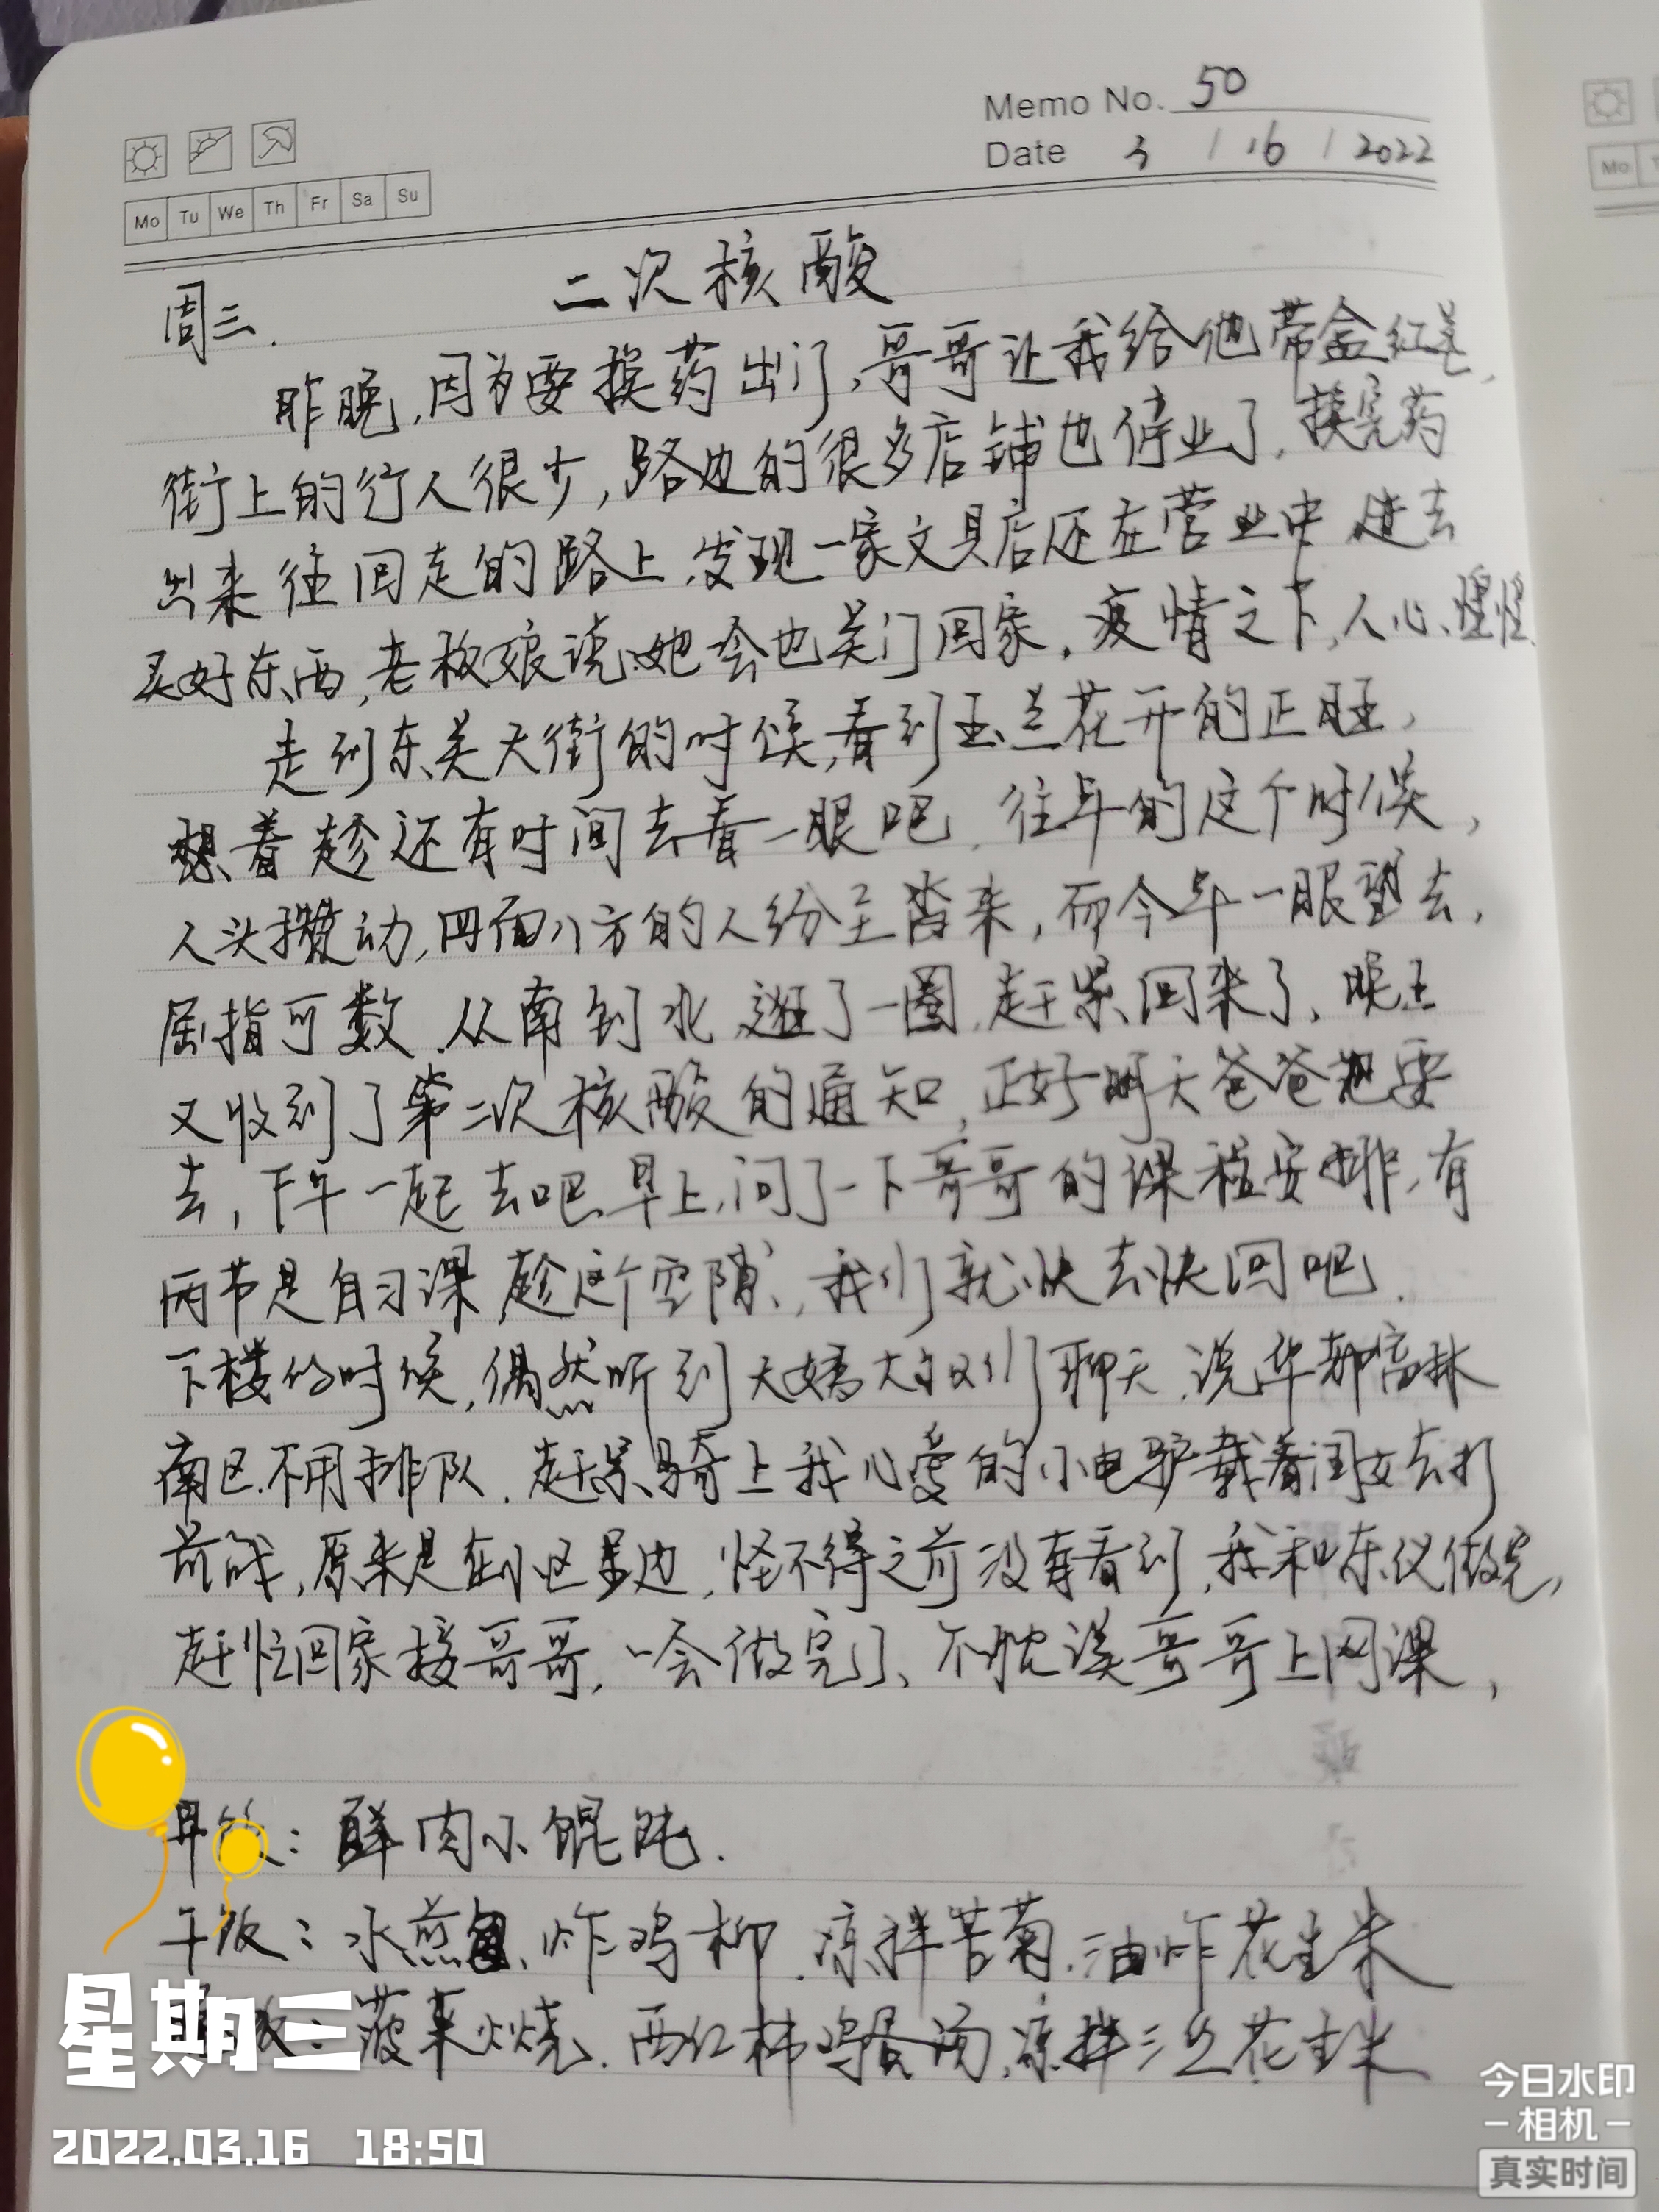 Memo No. 50
Date 3 / 16 / 2022
Mo Tu We Th Fr Sa Su
Mo
二次核酸
周三.
昨晚,因为要换药出门,哥哥让我给他带盒红笔,
街上的行人很少,路边的很多店铺也停业了,换完药
出来往回走的路上,发现一家文具店还在营业中,进去
买好东西,老板娘说她会也关门回家。疫情之下,人心惶惶.
走到东关大街的时候,看到玉兰花开的正旺,
想着趁还有时间去看一眼吧,往年的这个时候,
人头攒动,四面八方的人纷至沓来,而今年一眼望去,
屈指可数.从南到北逛了一圈,赶紧回来了、晚上
又收到了第二次核酸的通知,正好明天爸爸也要
去,下午一起去吧、早上,问了一下哥哥的课程安排,有
两节是自习课,趁这个空隙,我们就快去快回吧.
下楼的时候,偶然听到大妈大叔们聊天,说华都高林
南区不用排队.赶紧骑上我心爱的小电驴载着闺女去打
前战,原来是在小区里边,怪不得之前没有看到,我和东仪做完,
赶忙回家接哥哥,一会做完了、不耽误哥哥上网课,
早饭:鲜肉小馄饨.
午饭:水煎包、炸鸡柳、凉拌苦菊.油炸花生米
饭:菠菜火烧.西红柿鸡蛋汤,凉拌三丝花生米
星期三
2022.03.16 18:50
今日水印
-相机-
真实时间